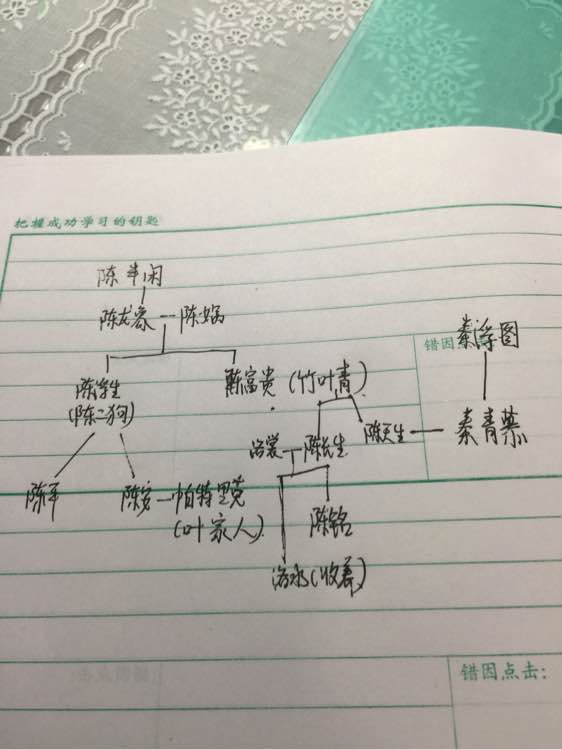 把握成功学习的钥匙
陈半闲
陈龙象 陈娲
错因
秦浮图
陈浮生
(陈二狗)
陈富贵 (竹叶青)
洛裳 陈长生 陈天生 秦青慕
陈平 陈安 帕特里克
(叶家人)
陈铭
洛水(收养)
错因点击: